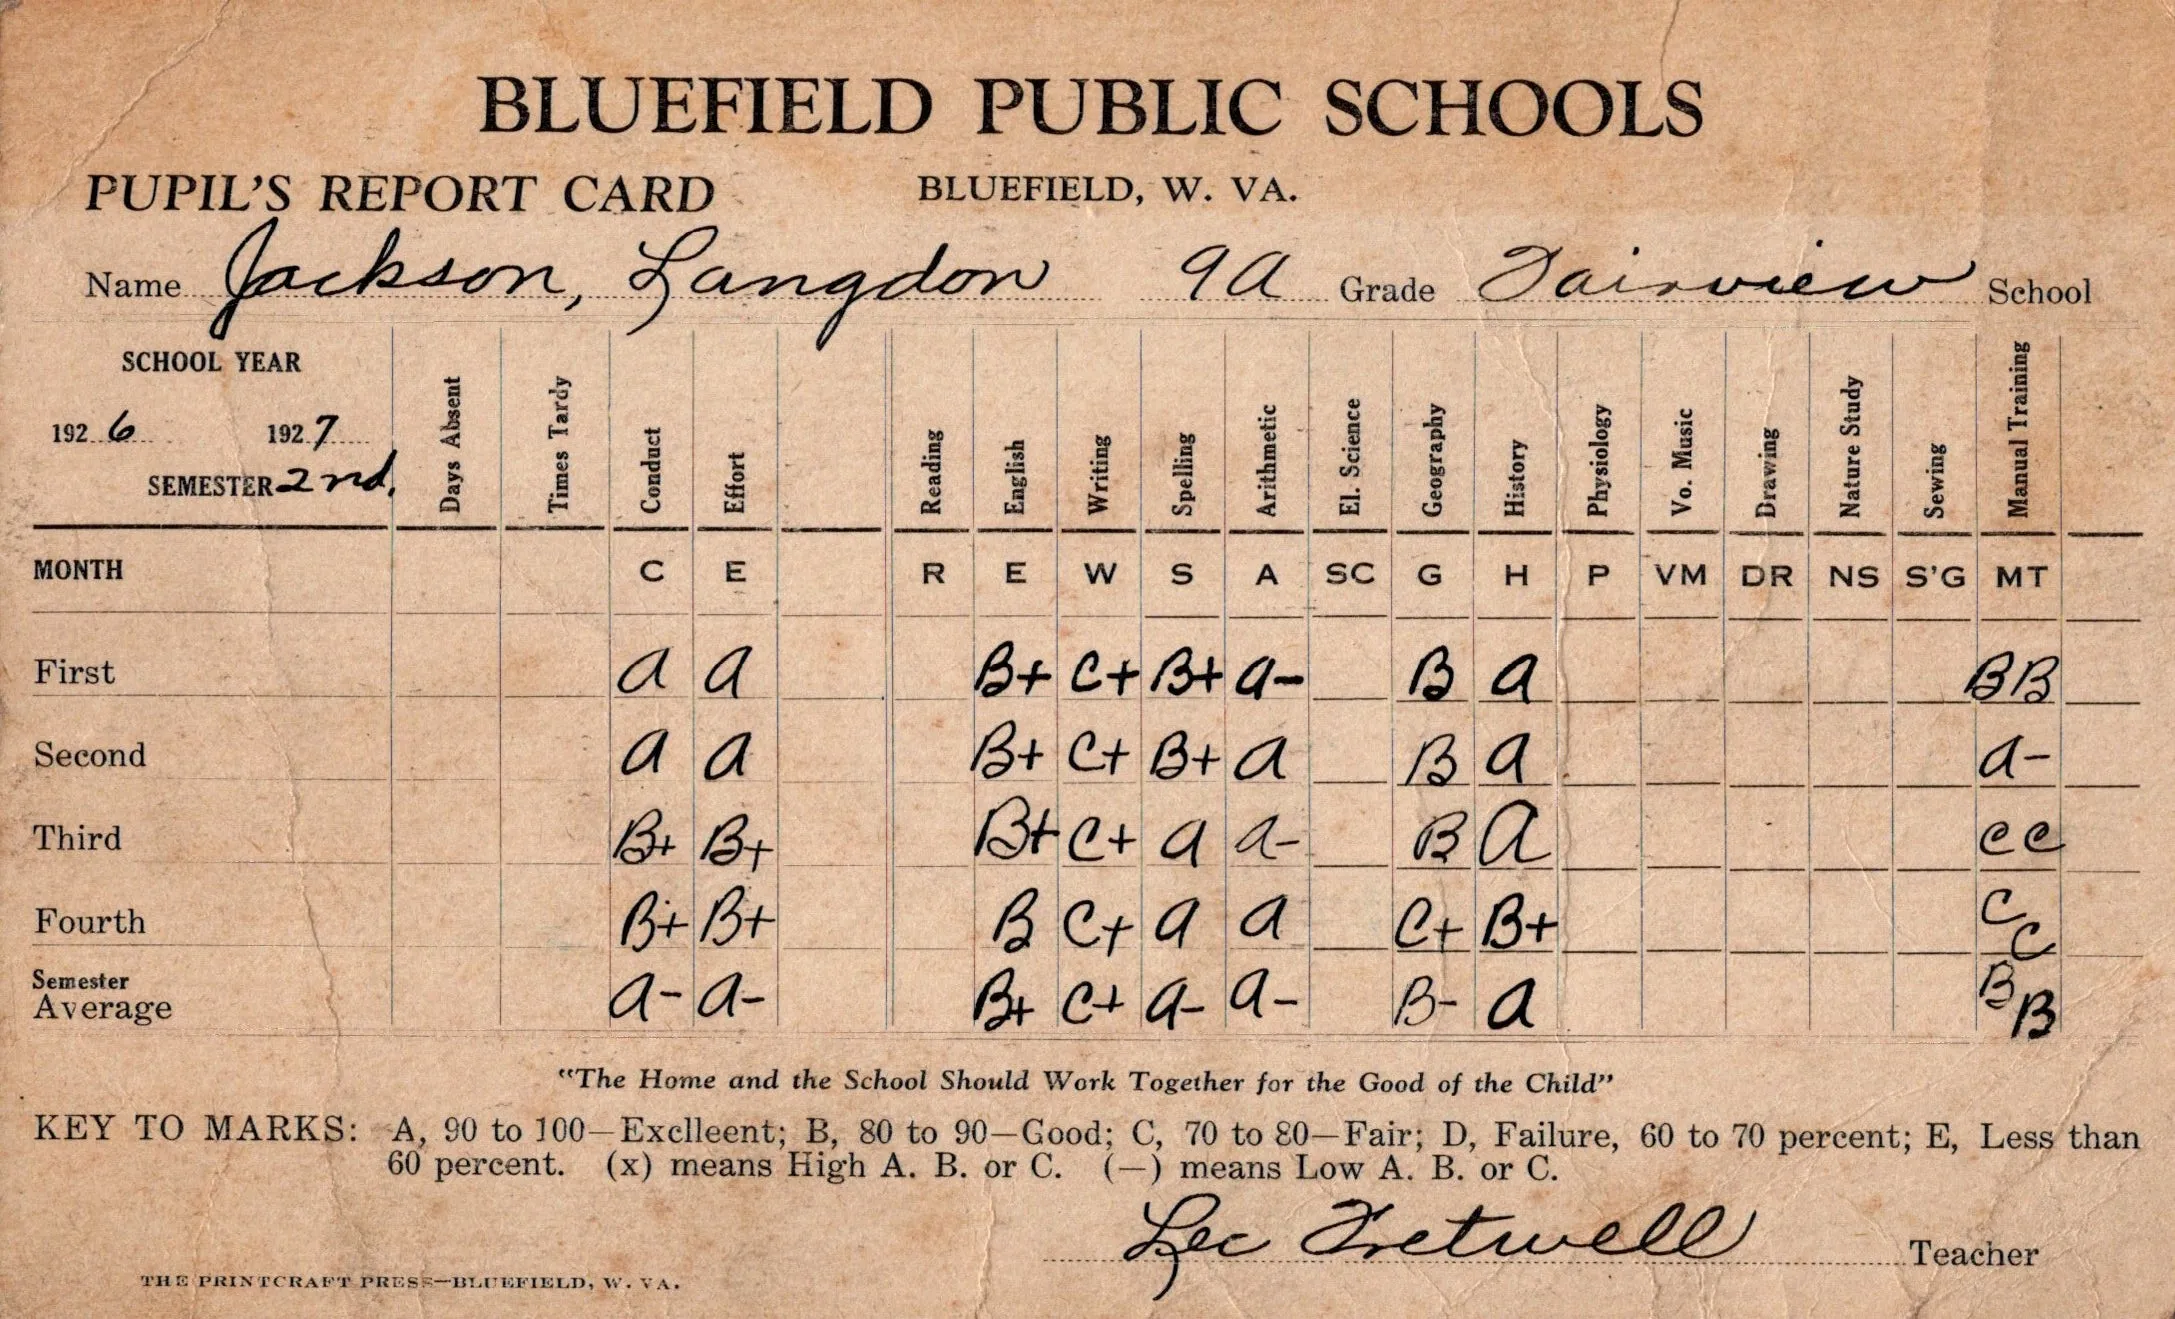 BLUEFIELD PUBLIC SCHOOLS
PUPIL'S REPORT CARD BLUEFIELD, W. VA.
Name Jackson, Langdon 9A Grade Fairview School
SCHOOL YEAR
1926 1927
SEMESTER 2nd.
Days Absent Times Tardy Conduct Effort Reading English Writing Spelling Arithmetic El. Science Geography History Physiology Vo. Music Drawing Nature Study Sewing Manual Training
MONTH C E R E W S A SC G H P VM DR NS S'G MT
First A A B+ C+ B+ A- B A BB
Second A A B+ C+ B+ A B A A-
Third B+ B+ B+ C+ A A- B A CC
Fourth B+ B+ B C+ A A C+ B+ CC
Semester
Average A- A- B+ C+ A- A- B- A BB
"The Home and the School Should Work Together for the Good of the Child"
KEY TO MARKS: A, 90 to 100—Exclleent; B, 80 to 90—Good; C, 70 to 80—Fair; D, Failure, 60 to 70 percent; E, Less than
60 percent. (x) means High A. B. or C. (—) means Low A. B. or C.
Lec Fretwell Teacher
THE PRINTCRAFT PRESS—BLUEFIELD, W. VA.